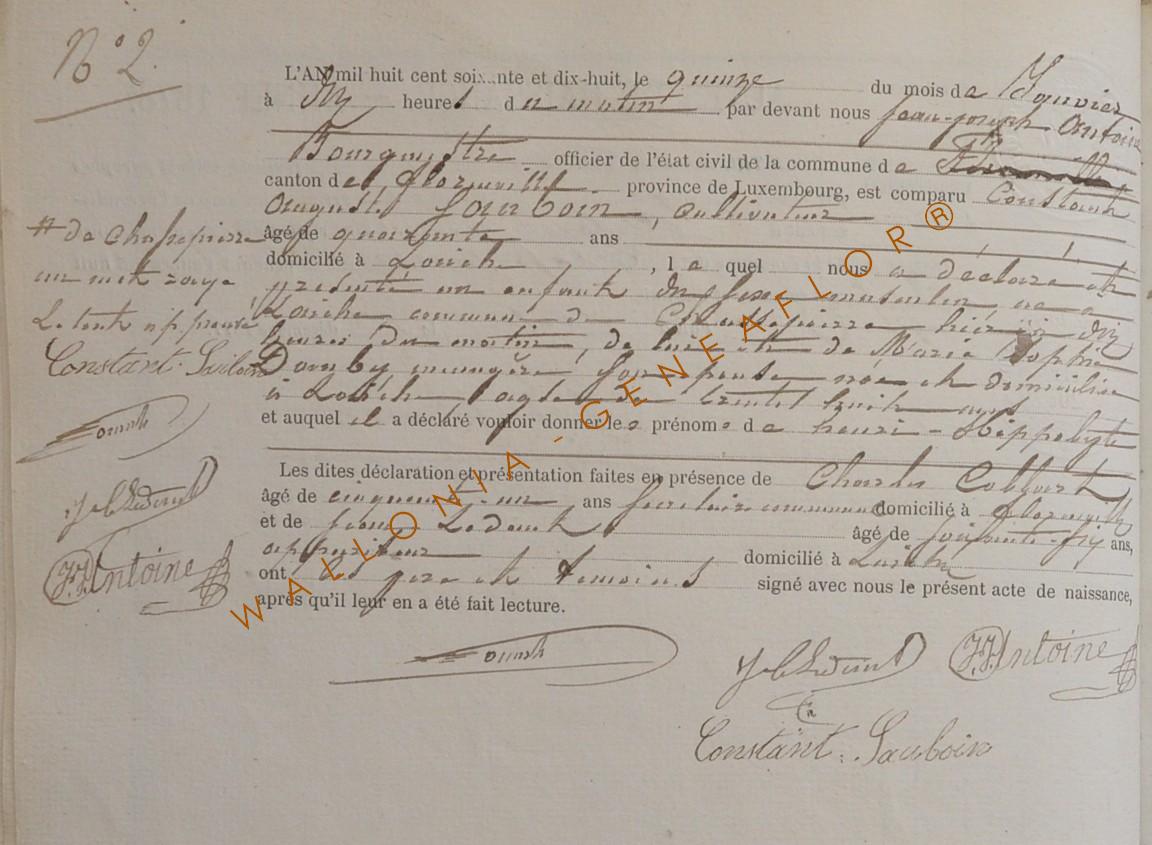 N° 2.
L'AN mil huit cent soixante et dix-huit, le quinze du mois de Janvier
à dix heures du matin par devant nous Jean-joseph Antoine
Bourgmestre officier de l'état civil de la commune de
canton de Florenville province de Luxembourg, est comparu Constant
Auguste Sauboin, cultivateur
# de Chassepierre
âgé de quarante ans
domicilié à Laiche, lequel nous a déclaré et
un mot rayé
présenté un enfant du sexe masculin né à
Le tout approuvé
Laiche commune de Chassepierre hier à dix
Constant Sauboin
heures du matin, de lui et de Marie Sophie
ménagère son épouse née et domiciliée
à Laiche âgée de trente huit ans
et auquel il a déclaré vouloir donner les prénoms de henri-hippolyte
Les dites déclaration et présentation faites en présence de Charles
âgé de cinquante-un ans secrétaire communal domicilié à Florenville
et de âgé de soixante-six ans,
domicilié à Laiche
ont les père et témoins signé avec nous le présent acte de naissance,
J.J. Antoine
après qu'il leur en a été fait lecture.
J.J. Antoine
Constant. Sauboin
WALLONIA - GENEAFLOR ®